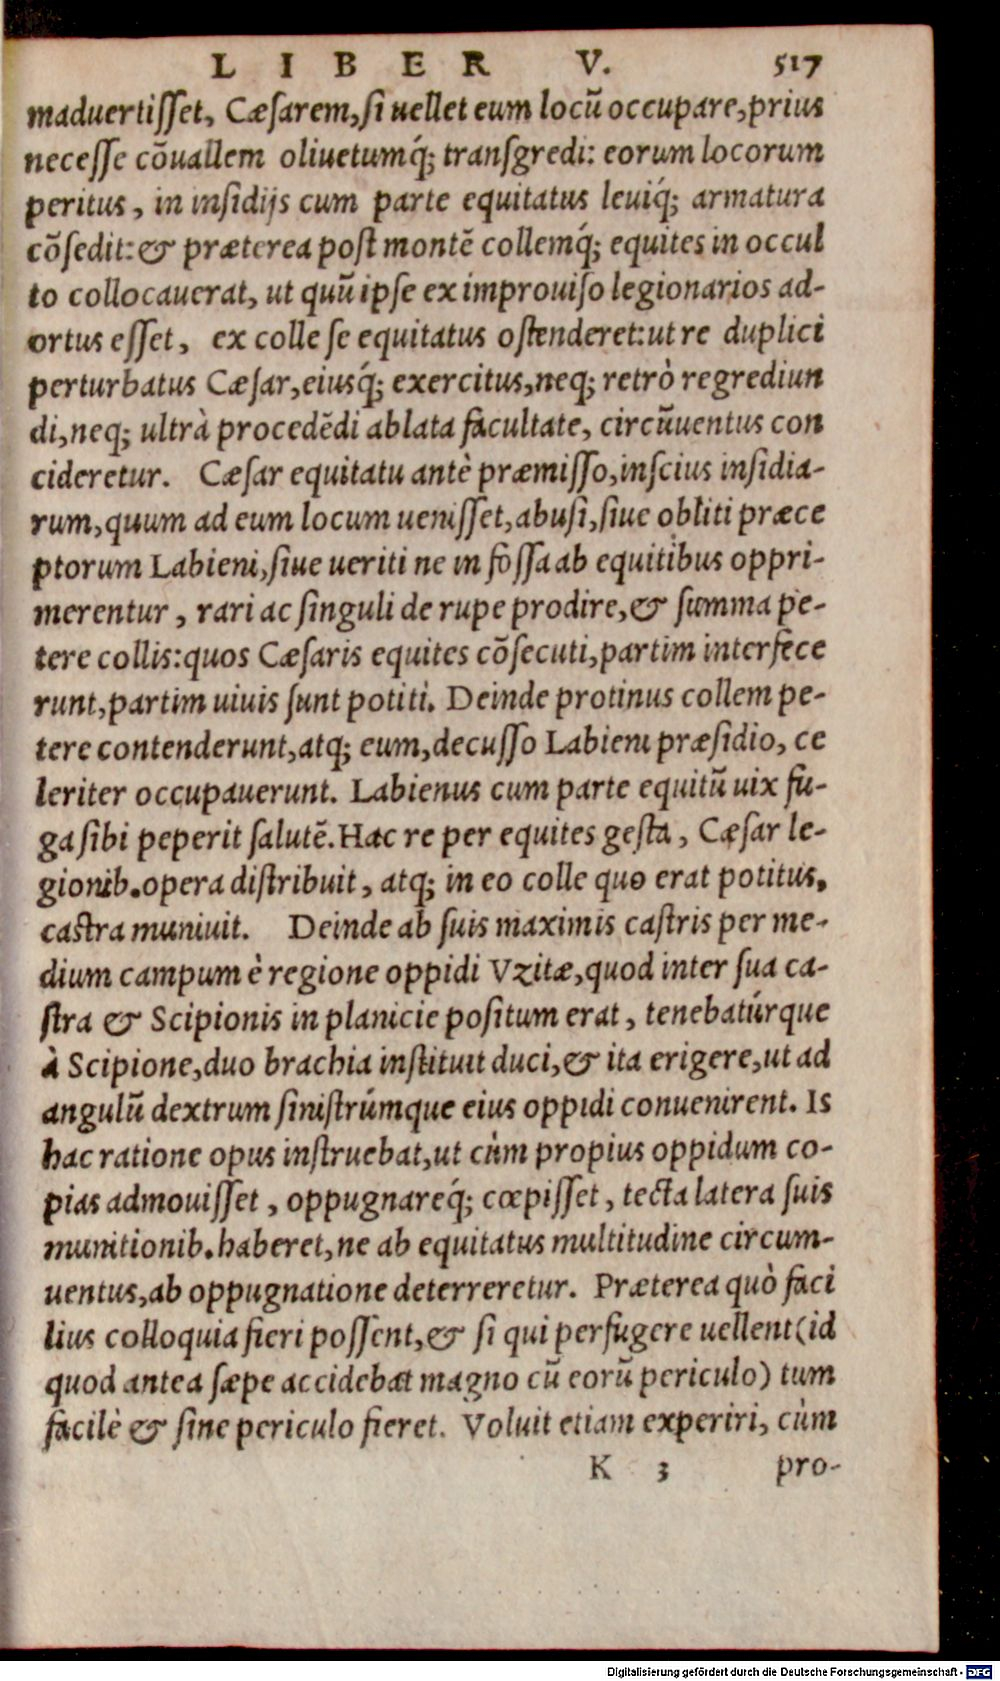 LIBER V. 517
maduertiſſet, Cæſarem, ſi uellet eum locũ occupare, prius
neceſſe cõuallem oliuetumq́; tranſgredi: eorum locorum
peritus, in inſidijs cum parte equitatus leuiq́; armatura
cõſedit: & præterea poſt montẽ collemq́; equites in occul
to collocauerat, ut quũ ipſe ex improuiſo legionarios ad-
ortus eſſet, ex colle ſe equitatus oſtenderet: ut re duplici
perturbatus Cæſar, eiusq́; exercitus, neq; retrò regrediun
di, neq; ultrà procedẽdi ablata facultate, circũuentus con
cideretur. Cæſar equitatu antè præmiſſo, inſcius inſidia-
rum, quum ad eum locum ueniſſet, abuſi, ſiue obliti præce
ptorum Labieni, ſiue ueriti ne in foſſa ab equitibus oppri-
merentur, rari ac ſinguli de rupe prodire, & ſumma pe-
tere collis: quos Cæſaris equites cõſecuti, partim interfece
runt, partim uiuis ſunt potiti. Deinde protinus collem pe-
tere contenderunt, atq; eum, decuſſo Labieni præſidio, ce
leriter occupauerunt. Labienus cum parte equitũ uix fu-
ga ſibi peperit ſalutẽ. Hac re per equites geſta, Cæſar le-
gionib. opera diſtribuit, atq; in eo colle quo erat potitus,
caſtra muniuit. Deinde ab ſuis maximis caſtris per me-
dium campum è regione oppidi Vzitæ, quod inter ſua ca-
ſtra & Scipionis in planicie poſitum erat, tenebatúrque
à Scipione, duo brachia inſtituit duci, & ita erigere, ut ad
angulũ dextrum ſiniſtrúmque eius oppidi conuenirent. Is
hac ratione opus inſtruebat, ut cùm propius oppidum co-
pias admouiſſet, oppugnareq́; cœpiſſet, tecta latera ſuis
munitionib. haberet, ne ab equitatus multitudine circum-
uentus, ab oppugnatione deterreretur. Præterea quò faci
lius colloquia fieri poſſent, & ſi qui perfugere uellent (id
quod antea ſæpe accidebat magno cũ eorũ periculo) tum
facilè & ſine periculo fieret. Voluit etiam experiri, cùm
K 3 pro-
Digitalisierung gefördert durch die Deutsche Forschungsgemeinschaft - DFG